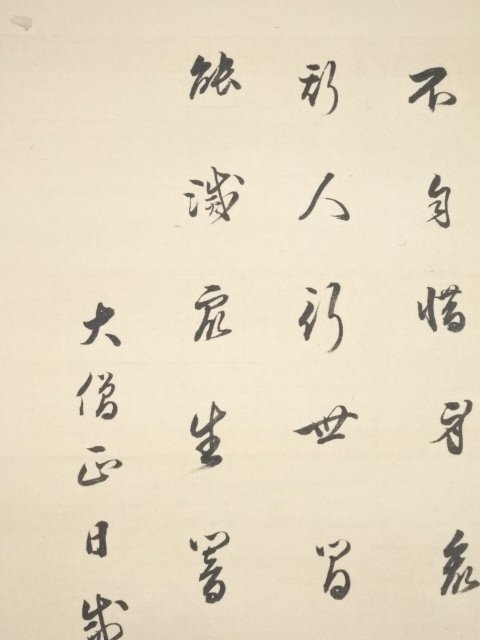 不自惜身
斯人行世間
能滅衆生闇
大僧正日